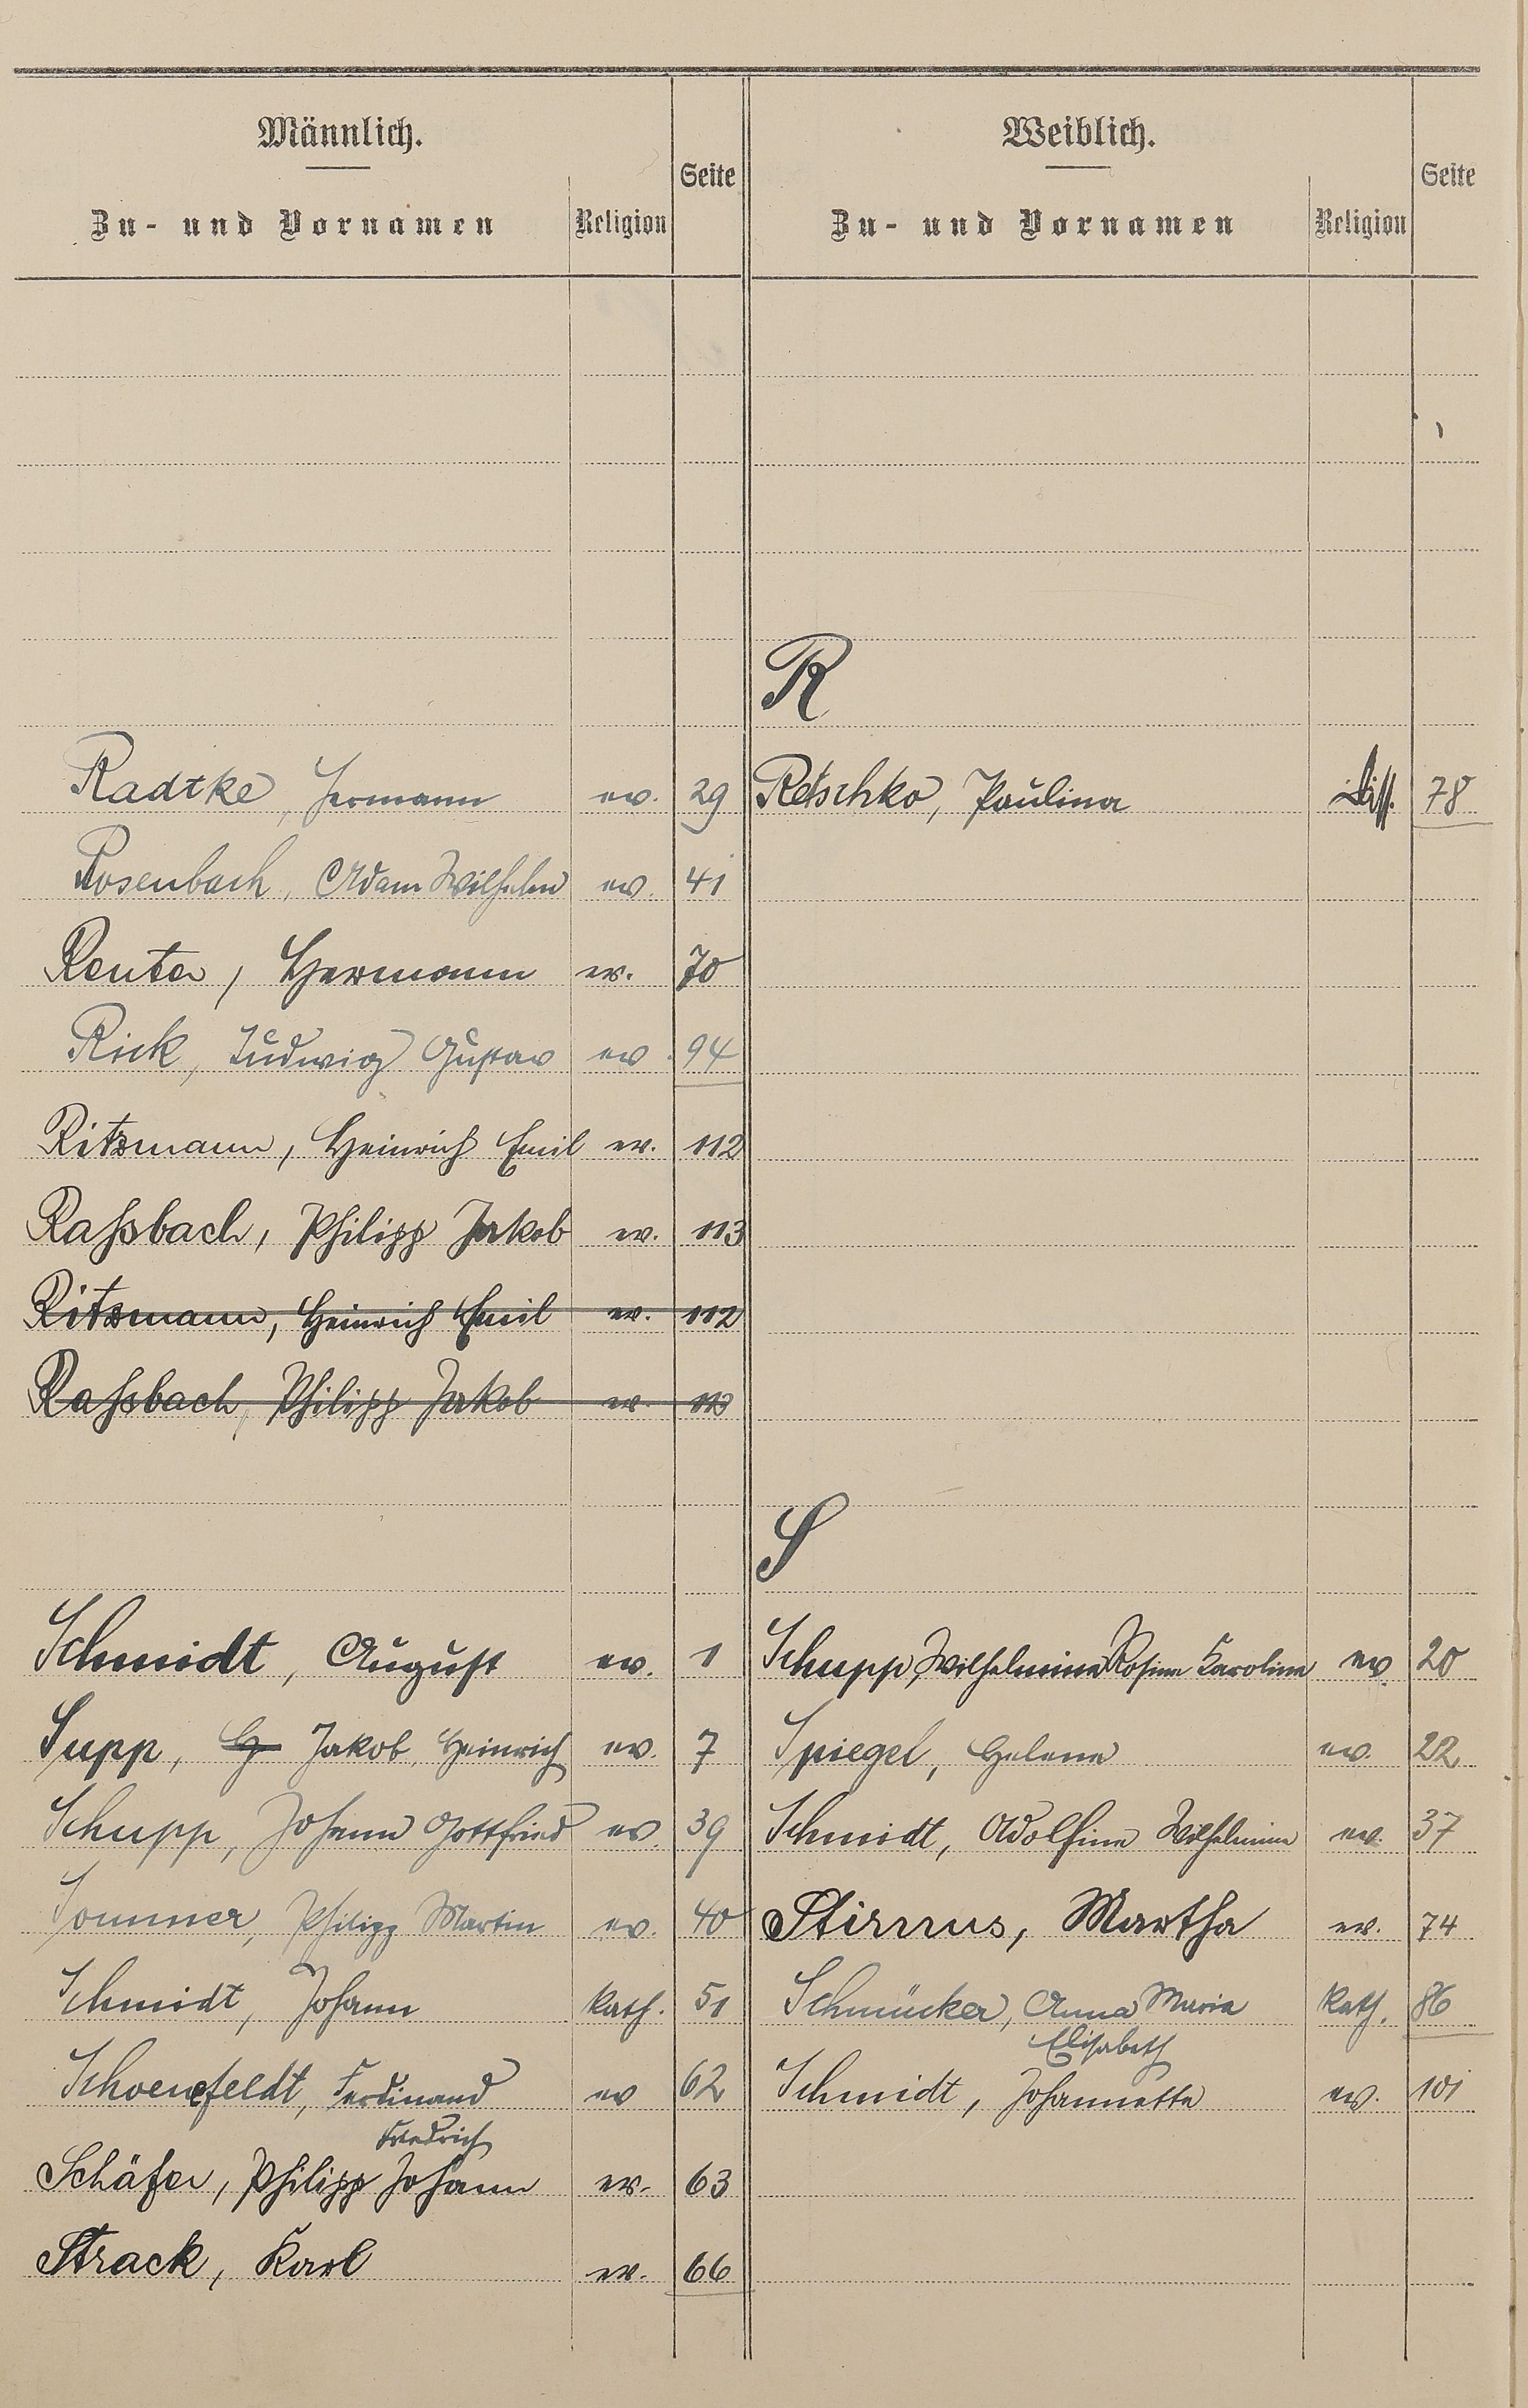 Männlich.
Zu- und Vornamen Religion Seite
Weiblich.
Zu- und Vornamen Religion Seite
R
Radtke, Hermann ev. 29 Retschko, Paulina Diss. 78
Rosenbach, Adam Wilhelm ev. 41
Reuter, Hermann ev. 70
Rick, Ludwig Gustav ev. 94
Ritzmann, Heinrich Emil ev. 112
Raßbach, Philipp Jakob ev. 113
Ritzmann, Heinrich Emil ev. 112
Raßbach, Philipp Jakob ev. 113
S
Schmidt, August ev. 1 Schupp, Wilhelmine Rosine Karoline ev. 20
Supp, H Jakob Heinrich ev. 7 Spiegel, Helene ev. 22
Schupp, Johann Gottfried ev. 39 Schmidt, Adolfine Wilhelmine ev. 37
Sommer, Philipp Martin ev. 40 Stirnus, Martha ev. 74
Schmidt, Johann kath. 51 Schmücker, Anna Maria kath. 86
Elisabeth
Schoenfeldt, Ferdinand ev 62 Schmidt, Johannette ev. 101
Friedrich
Schäfer, Philipp Johann ev. 63
Strack, Karl ev. 66